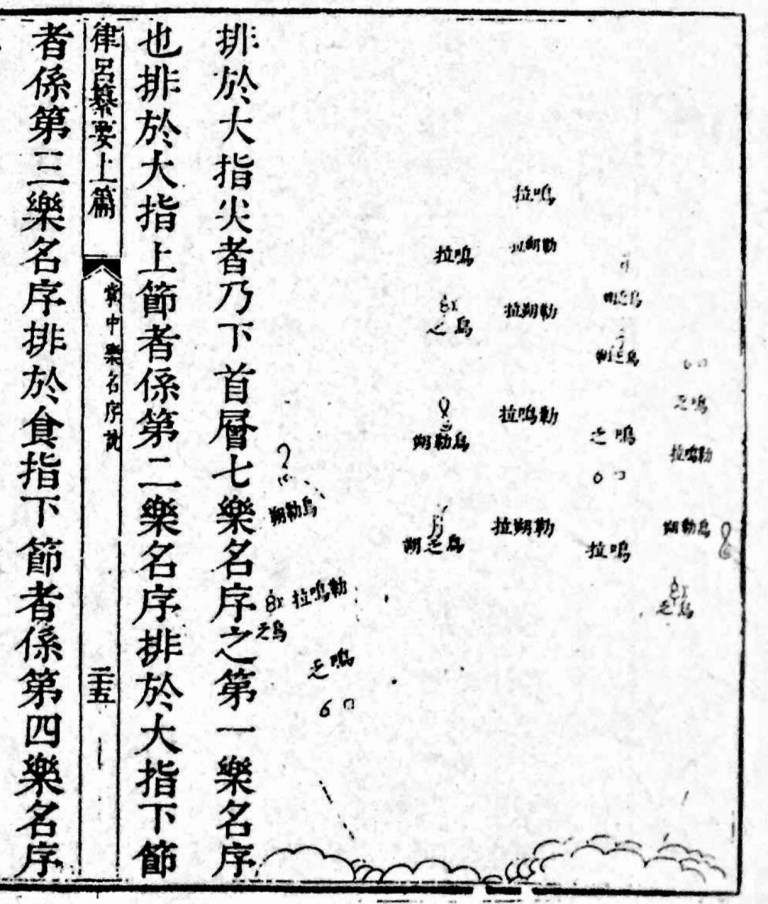 拉鳴
拉朔勒
拉鳴
拉朔勒
之烏
朔之烏
之鳴
拉鳴勒
拉鳴勒
之鳴
朔勒烏
朔勒烏
拉朔勒
朔之烏
拉鳴
朔勒烏
之烏
拉鳴勒
之烏
之鳴
排於大指尖者乃下首層七樂名序之第一樂名序
也排於大指上節者係第二樂名序排於大指下節
律呂纂要上篇
掌中樂名序說
二十五
者係第三樂名序排於食指下節者係第四樂名序